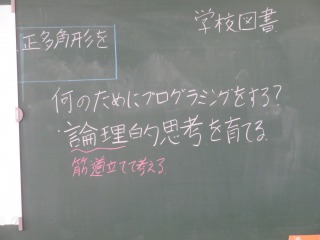 学校図書
正多角形を
何のためにプログラミングをする?
・論理的思考を育てる
筋道立てて考える